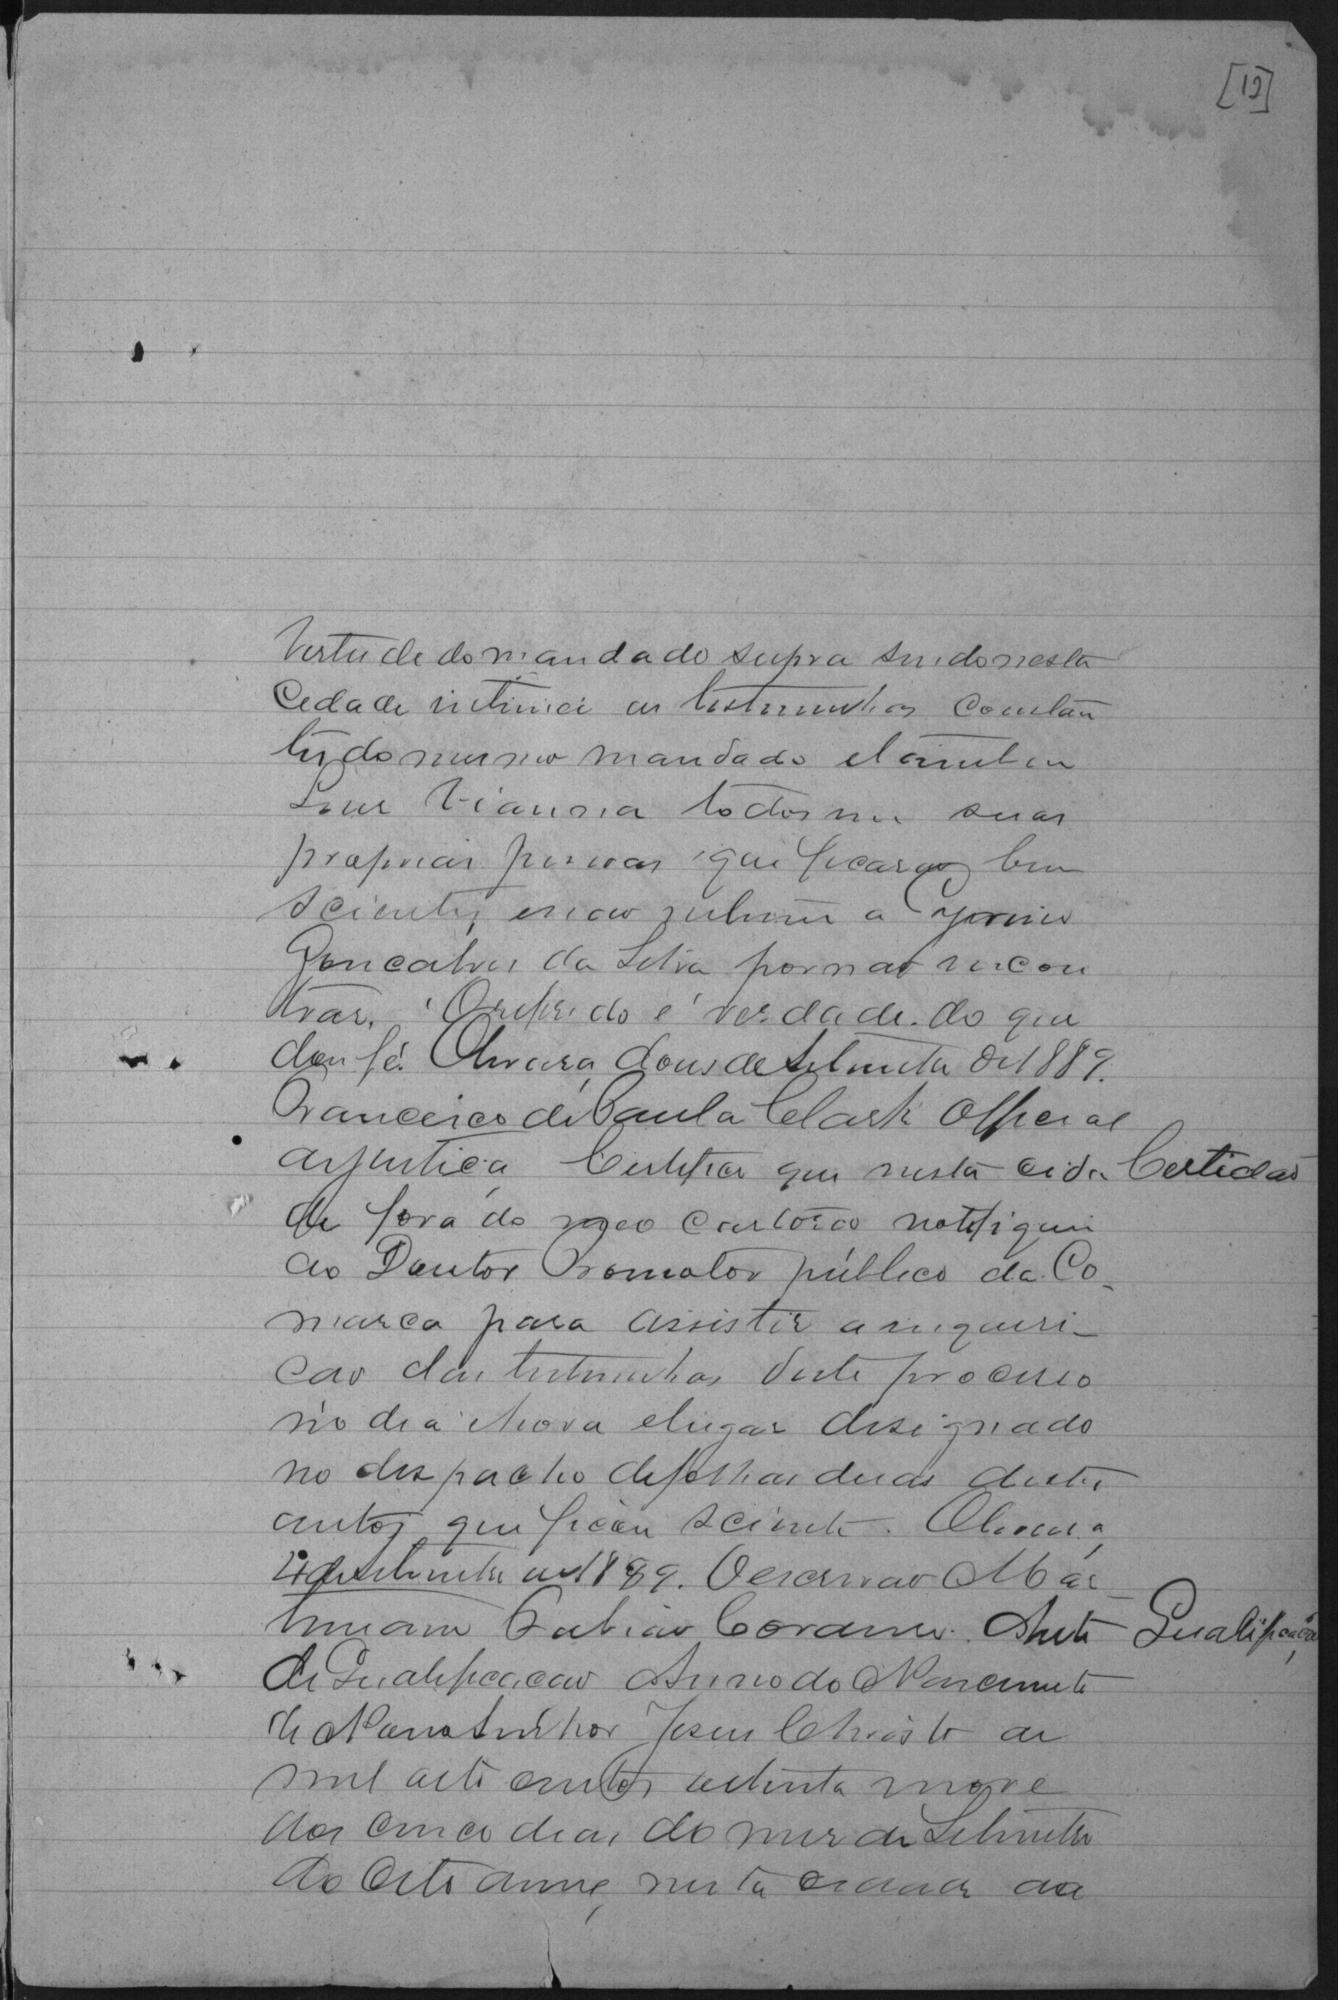 [12]
Vertude do mandado supra sendo nesta
Cedade intimei as testemunhas Constan
tes do mesmo mandado e tambem
Luis Vianna todos em suas
proprias pessoas que ficarão bem
scientes, e não intimei a
Goncalves da Silva por não encon
trar. O referido é verdade do que
dou fé. Oliveira, dous de Setembro de 1889.
Francisco de Paula Clark Official
de justica Certifico que nesta cida Certidão
de fora do meo cartorio notifiquei
ao Doutor Promotor público da Co-
marca para assistir a inqueri-
cão das testemunhas deste processo
no dia e hora e lugar designado
no despacho de folhas duas destes
autos, que ficou sciente. Oliveira,
4 de Setembro de 1889. O escrivão
Auto Qualificação
de Qualificacão Anno do Nascimento
de Nosso Senhor Jesus Christo de
mil oito centos oitenta nove
aos cinco dias do mes de Setembro
do dito anno, nesta cidade da